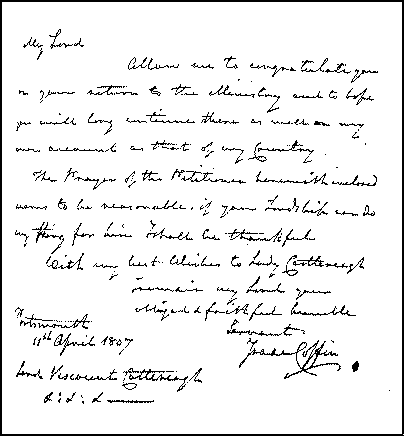 My Lord
Allow me to congratulate you
on your return to the Ministry and to hope
you will long continue there as well on my
own account as that of my Country.
The Prayer of the Petitioner herewith inclosed
seems to be reasonable, if your Lordship can do
any thing for him I shall be thankful
With my best Wishes to Lady Castlereagh
I remain my Lord your
obliged & faithful humble
Servant
Isaac Coffin
Portsmouth
11th April 1807
Lord Viscount Castlereagh
&: &: &